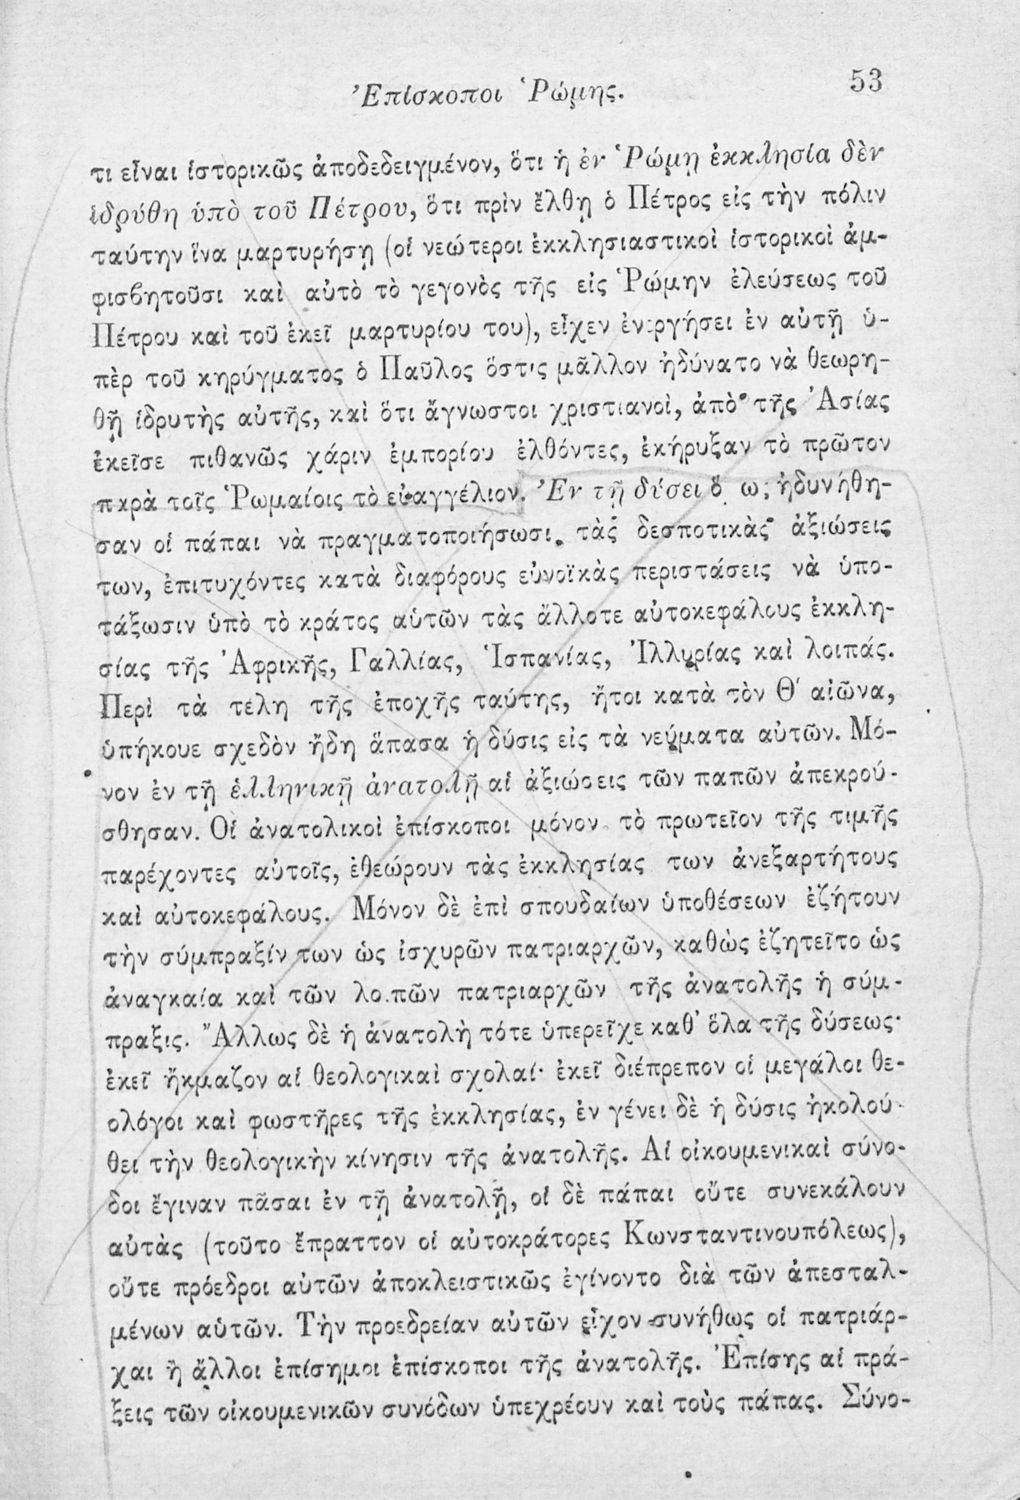 Ἐπίσκοποι Ῥώμης. 53
τι εἶναι ἱστορικῶς ἀποδεδειγμένον, ὅτι ἡ ἐν Ῥώμῃ ἐκκλησία δὲν
ἱδρύθη ὑπὸ τοῦ Πέτρου, ὅτι πρὶν ἔλθῃ ὁ Πέτρος εἰς τὴν πόλιν
ταύτην ἵνα μαρτυρήσῃ (οἱ νεώτεροι ἐκκλησιαστικοὶ ἱστορικοὶ ἀμ-
φισβητοῦσι καὶ αὐτὸ τὸ γεγονὸς τῆς εἰς Ῥώμην ἐλεύσεως τοῦ
Πέτρου καὶ τοῦ ἐκεῖ μαρτυρίου του), εἶχεν ἐνεργήσει ἐν αὐτῇ ὑ-
πὲρ τοῦ κηρύγματος ὁ Παῦλος ὅστις μᾶλλον ἠδύνατο νὰ θεωρη-
θῇ ἱδρυτὴς αὐτῆς, καὶ ὅτι ἄγνωστοι χριστιανοὶ, ἀπὸ τῆς Ἀσίας
ἐκεῖσε πιθανῶς χάριν ἐμπορίου ἐλθόντες, ἐκήρυξαν τὸ πρῶτον
παρὰ τοῖς Ῥωμαίοις τὸ εὐαγγέλιον. Ἐν τῇ δύσει ὅμως ἠδυνήθη-
σαν οἱ πάπαι νὰ πραγματοποιήσωσι τὰς δεσποτικὰς ἀξιώσεις
των, ἐπιτυχόντες κατὰ διαφόρους εὐνοϊκὰς περιστάσεις νὰ ὑπο-
τάξωσιν ὑπὸ τὸ κράτος αὑτῶν τὰς ἄλλοτε αὐτοκεφάλους ἐκκλη-
σίας τῆς Ἀφρικῆς, Γαλλίας, Ἱσπανίας, Ἰλλυρίας καὶ λοιπάς.
Περὶ τὰ τέλη τῆς ἐποχῆς ταύτης, ἤτοι κατὰ τὸν Θ΄ αἰῶνα,
ὑπήκουε σχεδὸν ἤδη ἅπασα ἡ δύσις εἰς τὰ νεύματα αὐτῶν. Μό-
νον ἐν τῇ ἑλληνικῇ ἀνατολῇ αἱ ἀξιώσεις τῶν παπῶν ἀπεκρού-
σθησαν. Οἱ ἀνατολικοὶ ἐπίσκοποι μόνον τὸ πρωτεῖον τῆς τιμῆς
παρέχοντες αὐτοῖς, ἐθεώρουν τὰς ἐκκλησίας των ἀνεξαρτήτους
καὶ αὐτοκεφάλους. Μόνον δὲ ἐπὶ σπουδαίων ὑποθέσεων ἐζήτουν
τὴν σύμπραξίν των ὡς ἰσχυρῶν πατριαρχῶν, καθὼς ἐζητεῖτο ὡς
ἀναγκαία καὶ τῶν λοιπῶν πατριαρχῶν τῆς ἀνατολῆς ἡ σύμ-
πραξις. Ἄλλως δὲ ἡ ἀνατολὴ τότε ὑπερεῖχε καθ’ ὅλα τῆς δύσεως·
ἐκεῖ ἤκμαζον αἱ θεολογικαὶ σχολαί· ἐκεῖ διέπρεπον οἱ μεγάλοι θε-
ολόγοι καὶ φωστῆρες τῆς ἐκκλησίας, ἐν γένει δὲ ἡ δύσις ἠκολού-
θει τὴν θεολογικὴν κίνησιν τῆς ἀνατολῆς. Αἱ οἰκουμενικαὶ σύνο-
δοι ἔγιναν πᾶσαι ἐν τῇ ἀνατολῇ, οἱ δὲ πάπαι οὔτε συνεκάλουν
αὐτὰς (τοῦτο ἔπραττον οἱ αὐτοκράτορες Κωνσταντινουπόλεως),
οὔτε πρόεδροι αὐτῶν ἀποκλειστικῶς ἐγίνοντο διὰ τῶν ἀπεσταλ-
μένων αὑτῶν. Τὴν προεδρείαν αὐτῶν εἶχον συνήθως οἱ πατριάρ-
χαι ἢ ἄλλοι ἐπίσημοι ἐπίσκοποι τῆς ἀνατολῆς. Ἐπίσης αἱ πρά-
ξεις τῶν οἰκουμενικῶν συνόδων ὑπεχρέουν καὶ τοὺς πάπας. Σύνο-